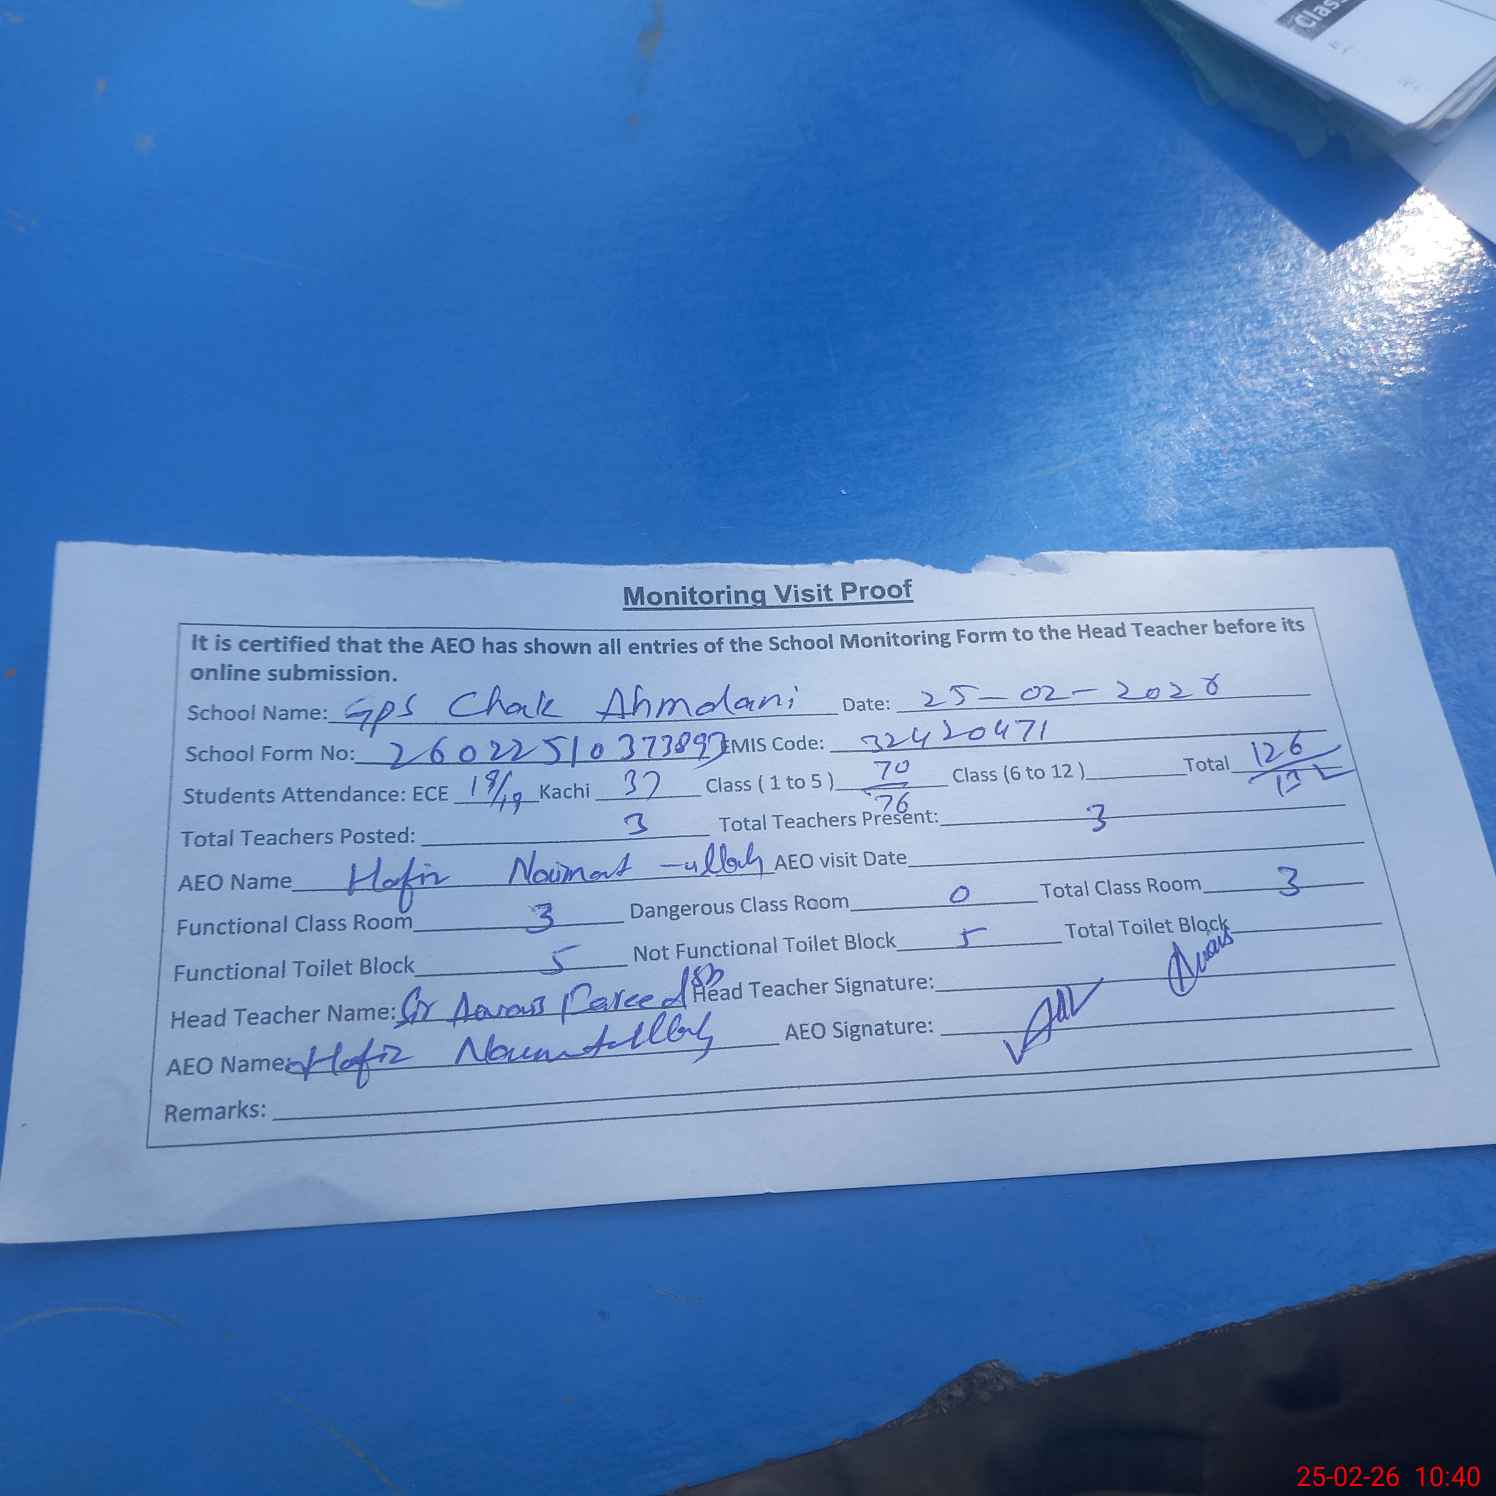 Clas
Monitoring Visit Proof
It is certified that the AEO has shown all entries of the School Monitoring Form to the Head Teacher before its
online submission.
School Name: GPS Chak Ahmdani Date: 25-02-2026
School Form No: 26022510373893 EMIS Code: 32420471
Students Attendance: ECE 19/19 Kachi 37 Class ( 1 to 5 ) 70/76 Class (6 to 12 ) Total 126/132
Total Teachers Posted: 3 Total Teachers Present: 3
AEO Name Hafiz Naimat-ullah AEO visit Date
Functional Class Room 3 Dangerous Class Room 0 Total Class Room 3
Functional Toilet Block 5 Not Functional Toilet Block 5 Total Toilet Block
Head Teacher Name: Fareed Head Teacher Signature: Awais
AEO Name: Hafiz Naimatullah AEO Signature:
Remarks:
25-02-26 10:40